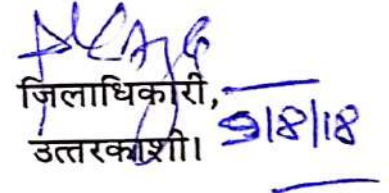 जिलाधिकारी,
उत्तरकाशी।
9/8/18